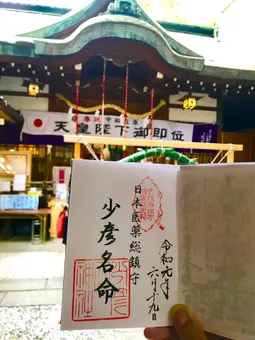 天皇陛下御即位
日本医薬総鎮守
少彦名命
令和元年
六月十九日